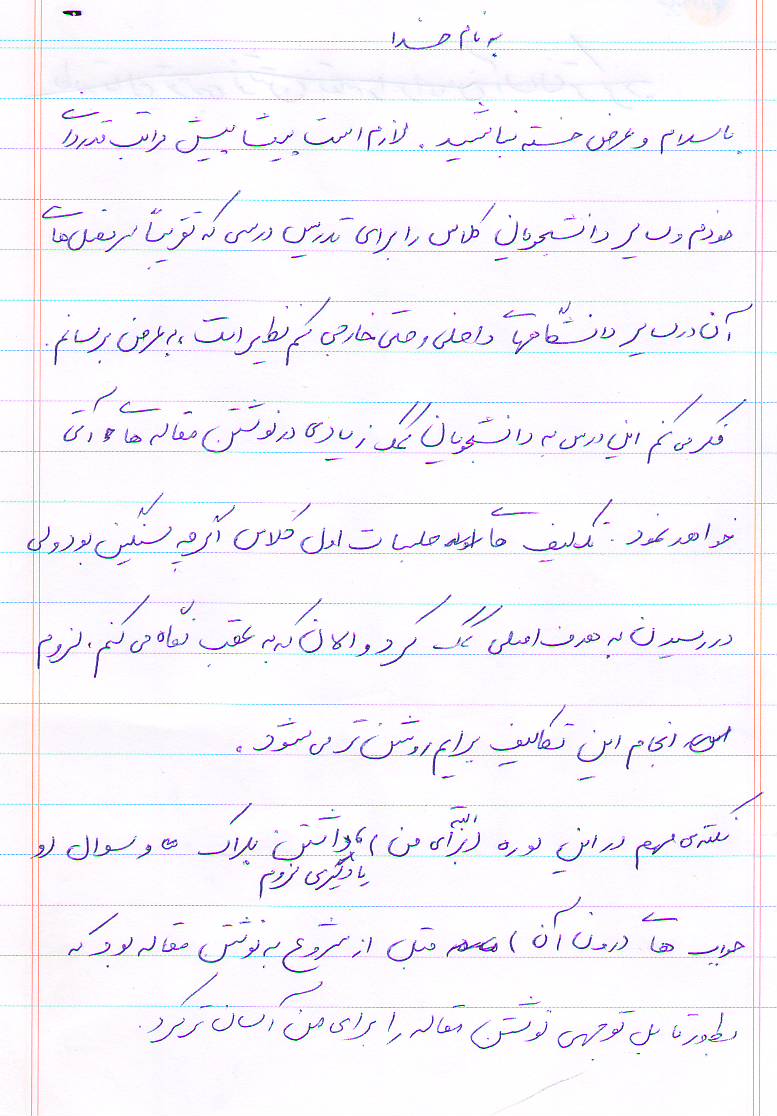 به نام خدا
با سلام و عرض خسته نباشید. لازم است پیشاپیش مراتب قدردانی
خودم و سایر دانشجویان کلاس را برای تدریس درسی که تقریباً سرفصل‌های
آن در سایر دانشگاههای داخلی و حتی خارجی کم نظیر است، به عرض برسانم.
فکر می کنم این درس به دانشجویان کمک زیادی در نوشتن مقاله های آتی
خواهد نمود. تکلیف های جلسات اول کلاس اگرچه سنگین بود ولی
در رسیدن به هدف اصلی کمک کرد و الان که به عقب نگاه می کنم، لزوم
انجام این تکالیف برایم روشن تر می شود.
نکته‌ی مهم در این دوره (البته برای من)، یادگیری لزوم داشتن بلاگ و سوال (و
جواب های درون آن) قبل از شروع به نوشتن مقاله بود که
بطور قابل توجهی نوشتن مقاله را برای من آسان تر کرد.